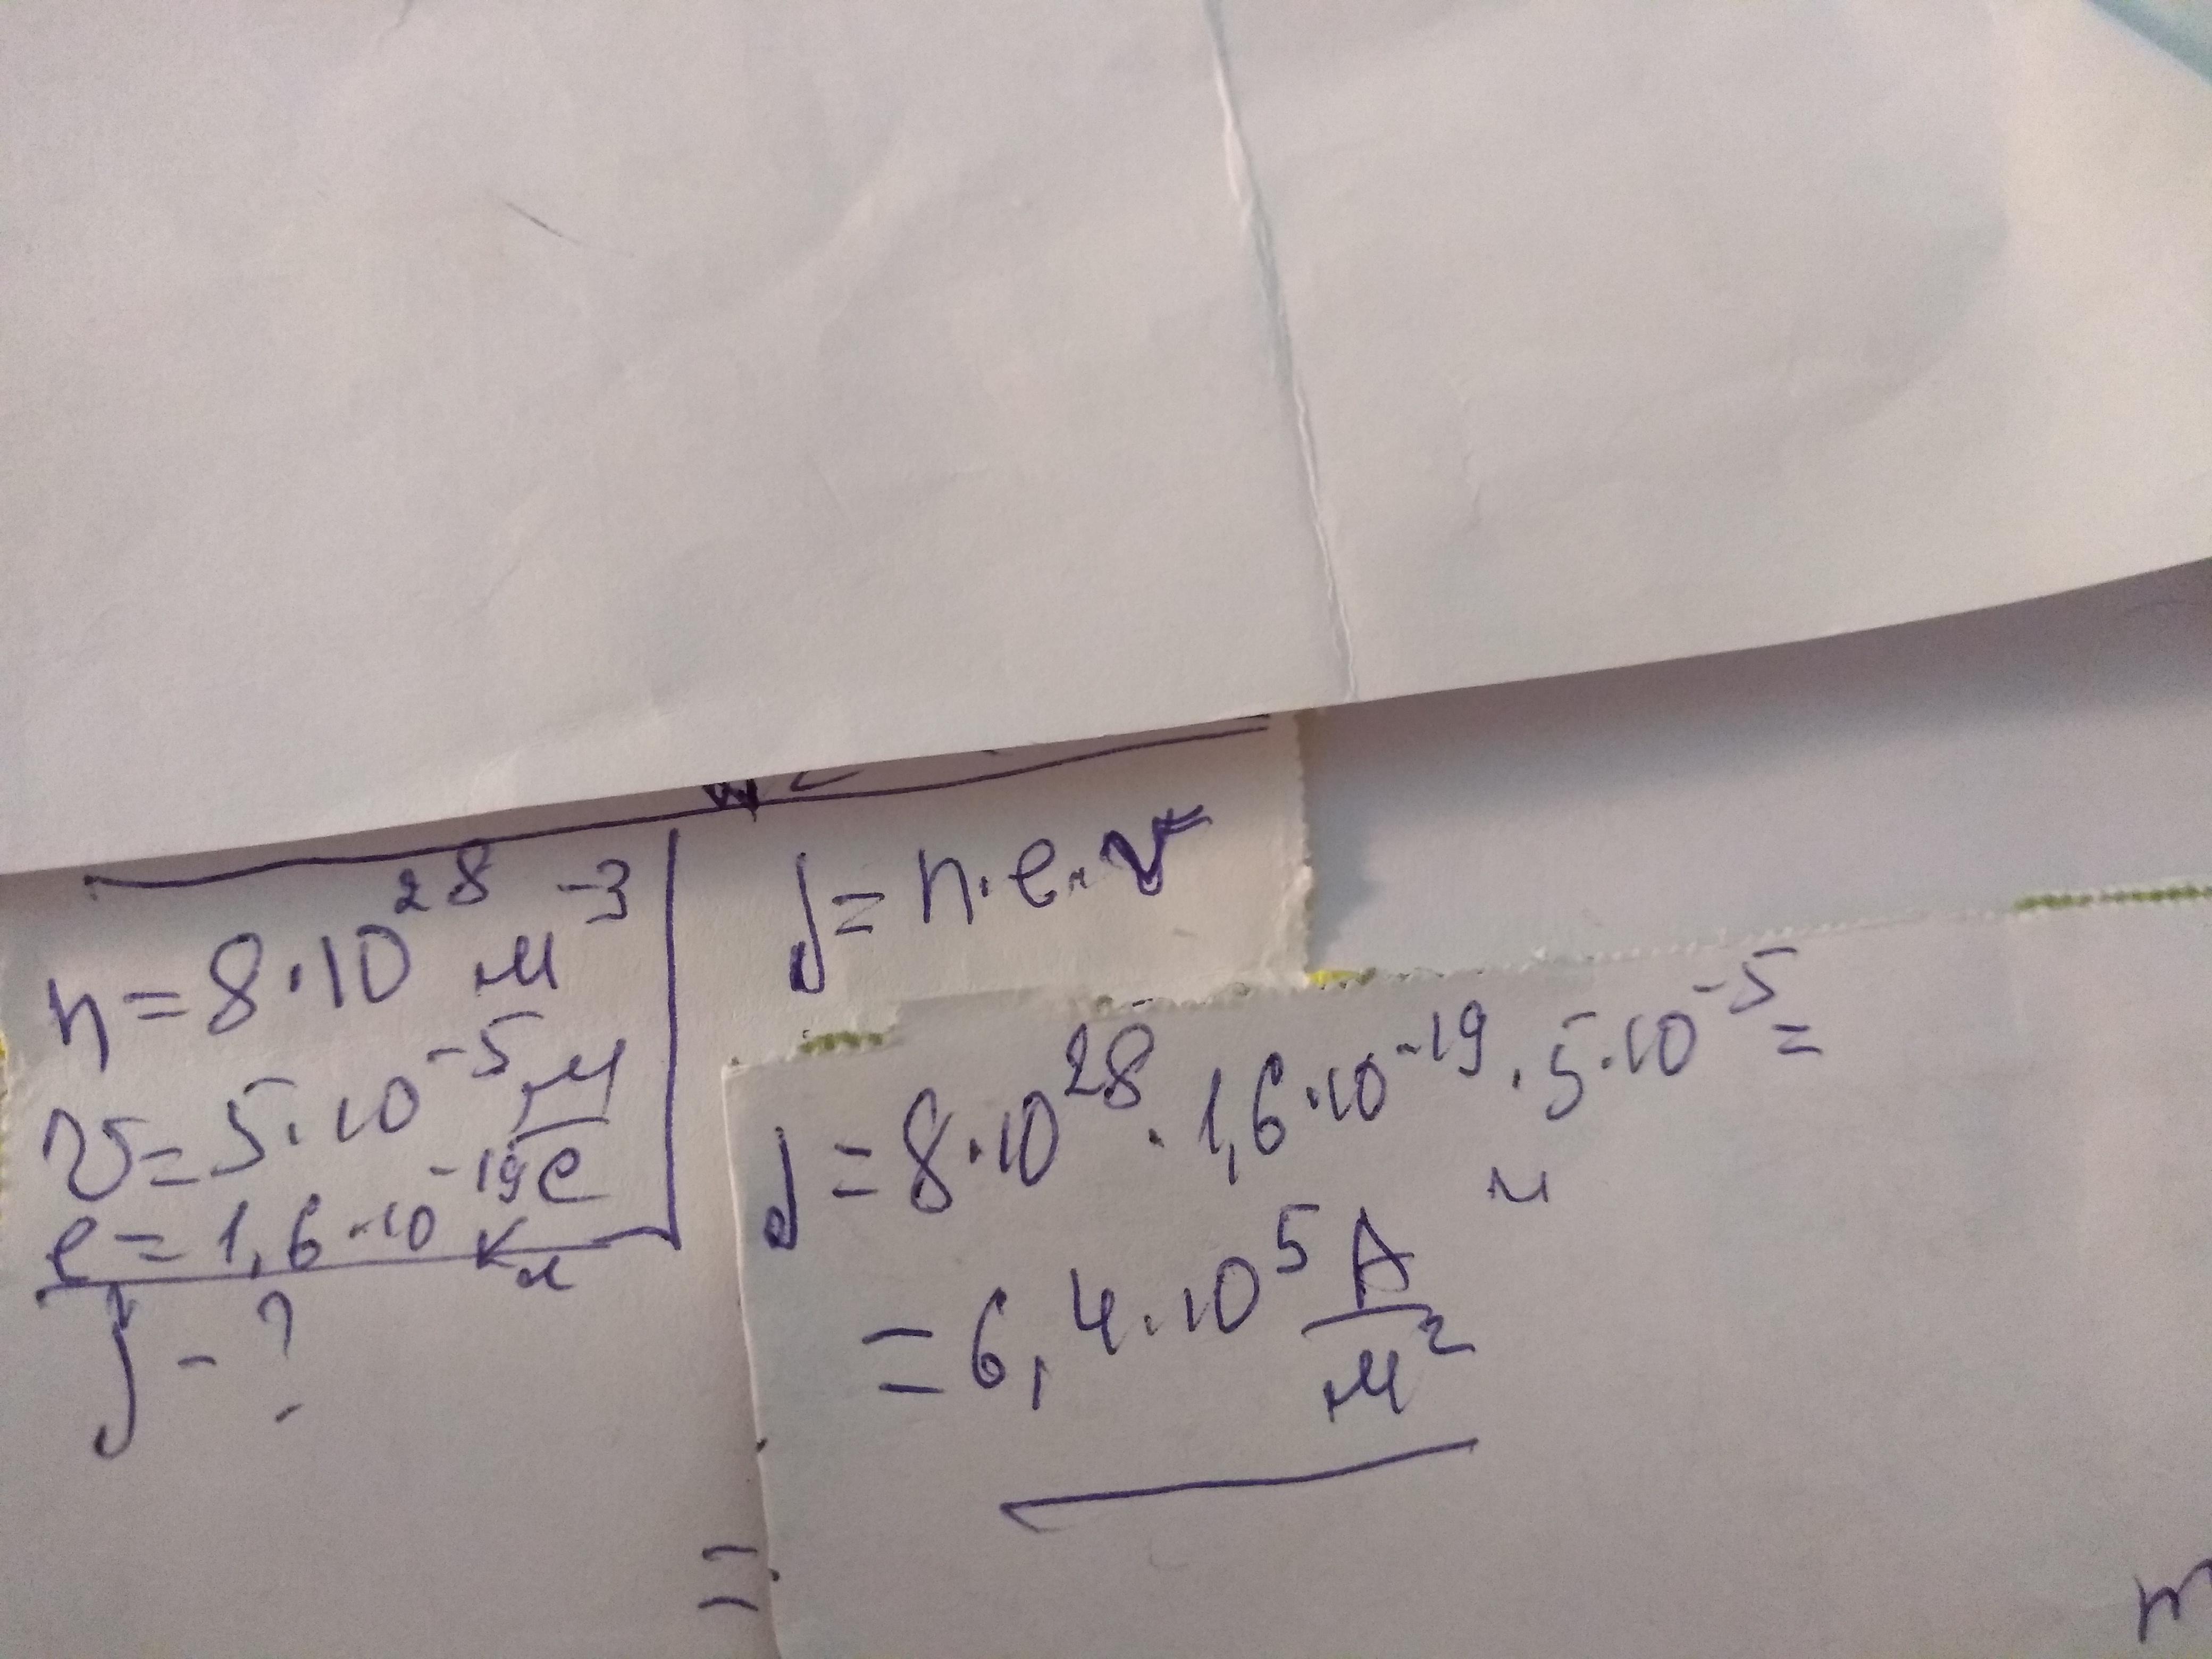 n = 8·10²⁸ м⁻³
v = 5·10⁻⁵ м/с
e = 1,6·10⁻¹⁹ Кл
j - ?
j = n·e·v
j = 8·10²⁸·1,6·10⁻¹⁹·5·10⁻⁵ =
= 6,4·10⁵ А/м²
=